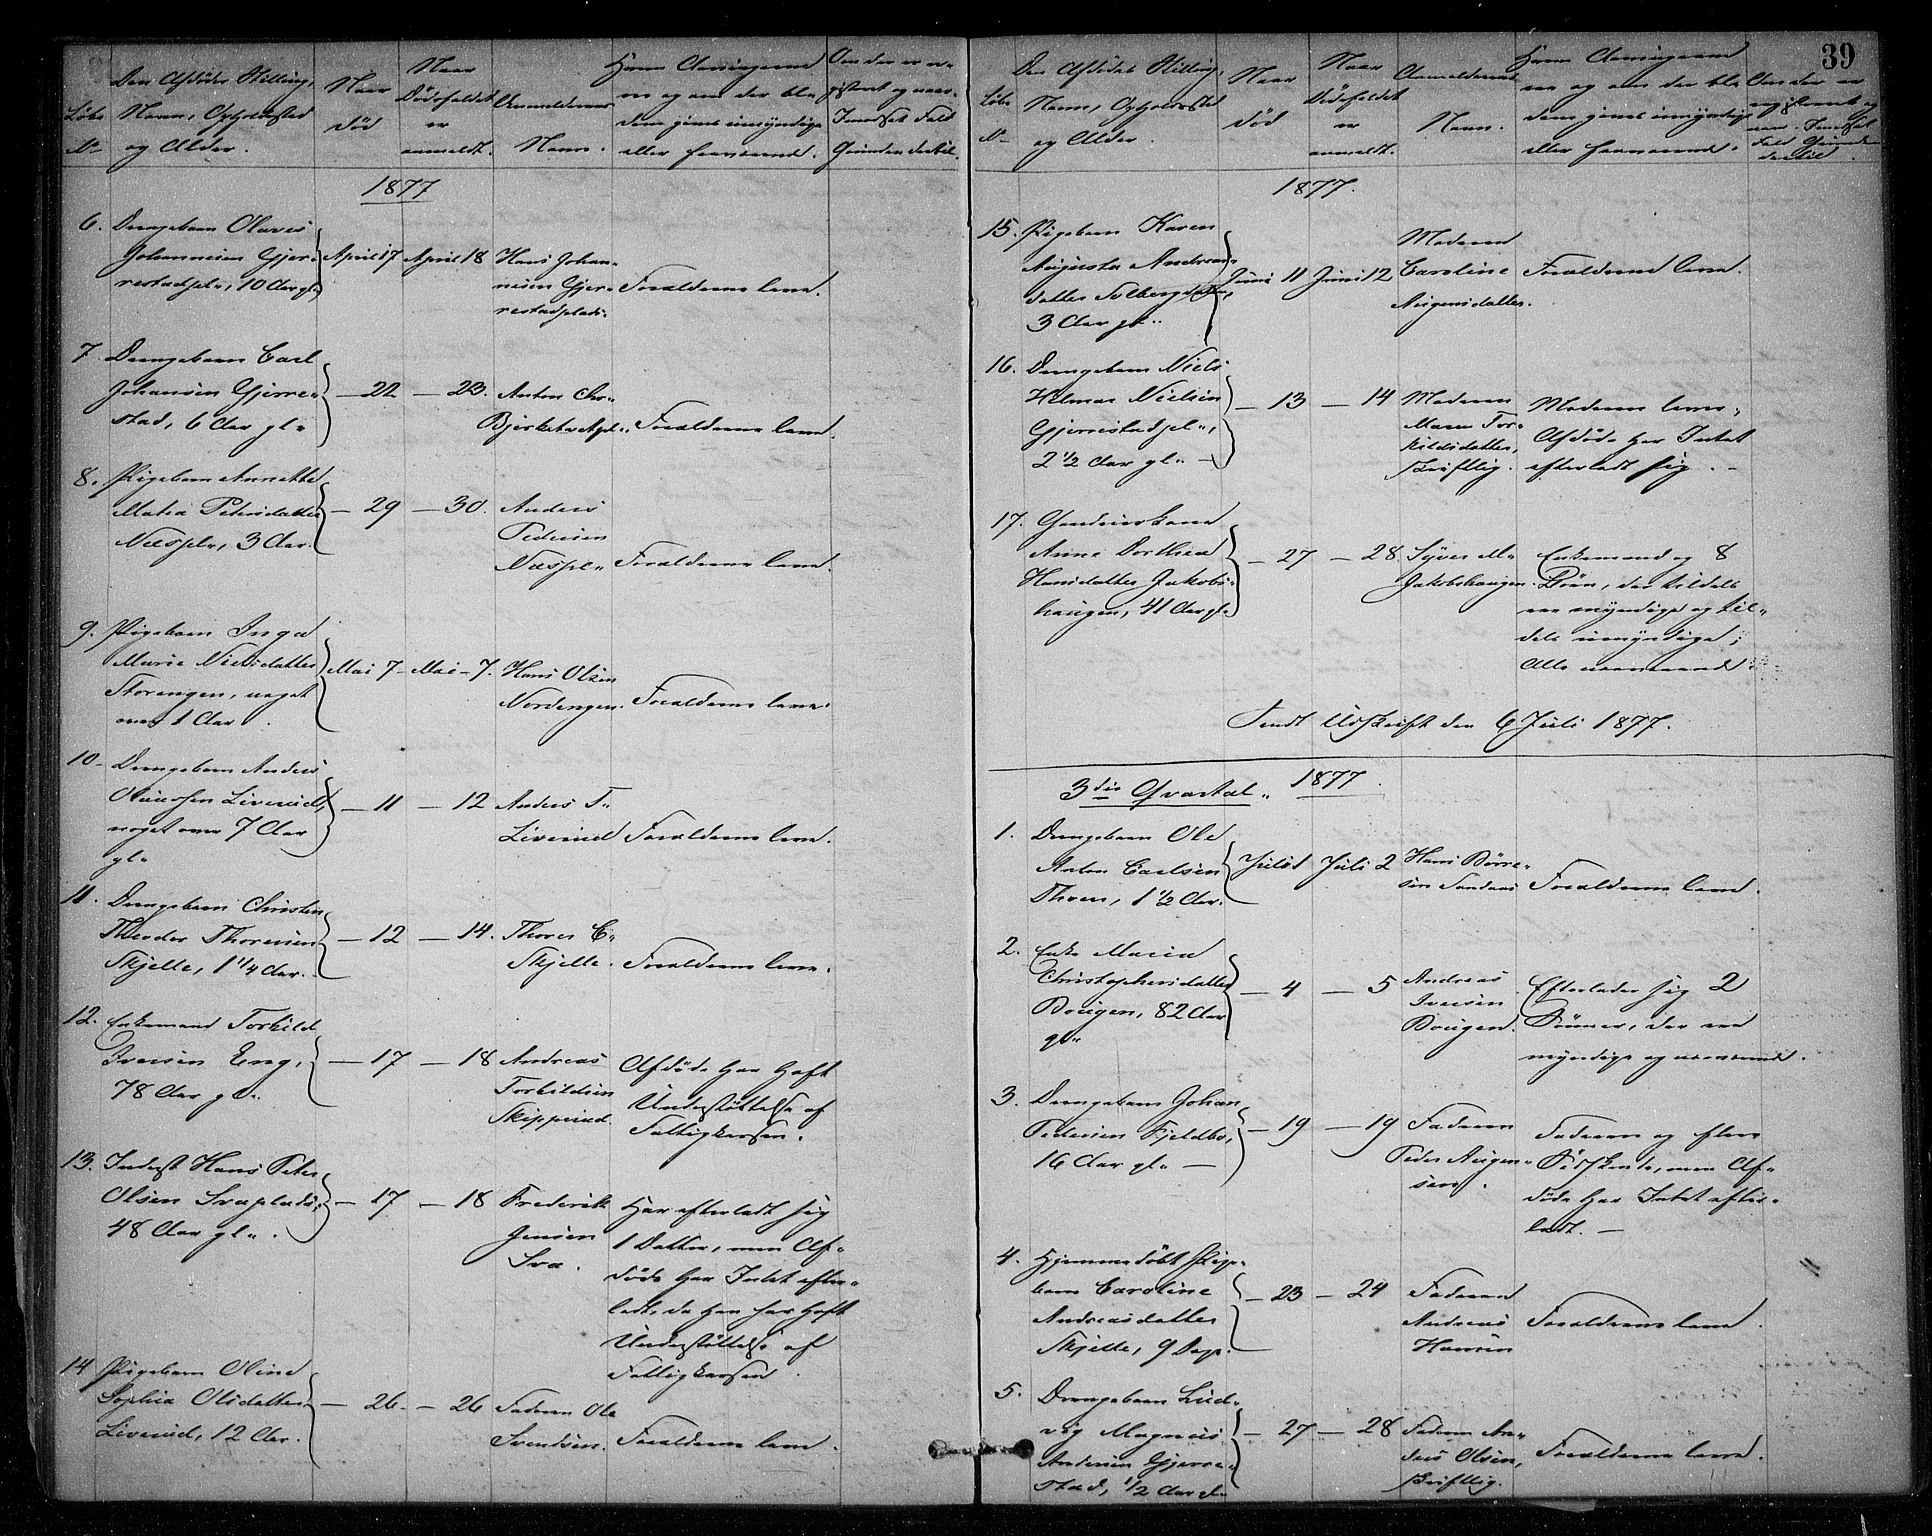 Løbe
No
Den Afdødes Stilling,
Navn, Opholdssted
og Alder.
Naar
død
Naar
Dødsfaldet
er
anmeldt.
Anmelderens
Navn.
Hvem Arvingerne
ere og om der bla
dem gives umyndige
eller fraværende.
Om der er re-
gistreret og naar.
I modsat Fald
Grunden dertil.
1877
6. Drengebarn Olaves
Johannesen Gjer-
restadpl., 10 Aar gl.
April 17 April 18
Hans Johan-
nesen Gjer-
restadplads.
Forældrene leve.
7. Drengebarn Carl
Johansen Gjerre-
stad, 6 Aar gl.
— 22 — 23.
Anton Chr.
Forældrene leve.
8. Pigebarn Annette
Matea Pedersdatter
Næspl., 3 Aar.
— 29 — 30.
Anders
Pedersen
Næspl.
Forældrene leve.
9. Pigebarn Inga
Marie Nielsdatter
Storengen, noget
over 1 Aar.
Mai 7 — Mai — 7.
Hans Olsen
Nordengen.
Forældrene leve.
10. Drengebarn Anders
Olaussen Liverud,
noget over 7 Aar
gl.
— 11 — 12
Anders T.
Liverud
Forældrene leve.
11. Drengebarn Christen
Theodor Thoresen
Skjelle, 1 1/4 Aar.
— 12 — 14.
Thorer C.
Skjelle.
Forældrene leve.
12. Enkemand Torkild
Iversen Eng,
78 Aar gl.
— 17 — 18
Andreas
Torkildsen
Skipperud.
Afdøde har havt
Understøttelse af
Fattigkassen.
13. Inderst Hans Peter
Olsen Svaplads,
48 Aar gl.
— 17 — 18
Frederik
Jensen
Sva.
Har efterladt sig
1 Datter, men Af-
døde har Intet efter-
ladt, da han har havt
Understøttelse af
Fattigkassen.
14 Pigebarn Oline
Sophia Olsdatter
Liverud, 12 Aar.
— 26. — 26
Faderen Ole
Svendsen.
Forældrene leve.
39
Løbe
No
Den Afdødes Stilling,
Navn, Opholdssted
og Alder.
Naar
død
Naar
Dødsfaldet
er
anmeldt.
Anmelderens
Navn.
Hvem Arvingerne
ere og om der bla
dem gives umyndige
eller fraværende.
Om der er
registreret og
naar. I modsat
Fald Grunden
dertil.
1877.
15. Pigebarn Karen
Augusta Andreas-
datter Solbergdalen,
3 Aar gl.
Juni 11 Juni 12
Moderen
Caroline
Augensdatter.
Forældrene leve.
16. Drengebarn Niels
Helmar Nielsen
Gjerrestadpl.,
2 1/2 Aar gl. —
— 13 — 14
Moderen
Maren Tor-
kildsdatter,
skriftlig.
Moderen lever.
Afdøde har Intet
efterladt sig. —
17. Gaardmandskone
Anne Dorthea
Hansdatter Jakobs-
haugen, 41 Aar gl.
— 27 — 28
Syver M.
Jakobshaugen.
Enkemand og 8
Børn, der tildels
ere myndige og til-
dels umyndige;
Alle nærværende.
Sendt Udskrift den 6 Juli 1877.
3die Qvartal. 1877.
1. Drengebarn Ole
Anton Carlsen
Thoen, 1 1/2 Aar.
Juli 1 Juli 2
Hans Børre-
sen Sanders
Forældrene leve.
2. Enke Maria
Christophersdatter
Bougen, 82 Aar
gl.
— 4 — 5
Andreas
Iversen
Bougen.
Efterlader sig 2
Sønner, der ere
myndige og nærværende.
3. Drengebarn Johan
Pedersen Fjeldbo,
16 Aar gl. —
— 19 — 19
Faderen
Peder Augen-
sen.
Faderen og flere
Sødskende, men Af-
døde har Intet efter-
ladt. —
4. Hjemmedøbt Pige-
barn Caroline
Andreasdatter
Skjelle, 9 Dage.
— 23 — 24
Faderen
Andreas
Hansen
Forældrene leve.
5. Drengebarn Lud-
vig Magnus
Andersen Gjerre-
stad, 1/2 Aar gl.
— 27 — 28
Faderen An-
ders Olsen,
skriftlig.
Forældrene leve.